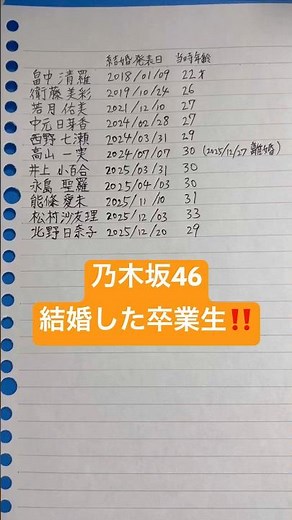 結婚発表日 当時年齢
畠中清羅 2018/01/09 22才
衛藤美彩 2019/10/24 26
若月佑美 2021/12/10 27
中元日芽香 2024/02/28 27
西野七瀬 2024/03/31 29
高山一実 2024/07/07 30 (2025/12/27 離婚)
井上小百合 2025/03/31 30
永島聖羅 2025/04/03 30
能條愛未 2025/11/10 31
松村沙友理 2025/12/03 33
北野日奈子 2025/12/20 29
乃木坂46
結婚した卒業生‼️